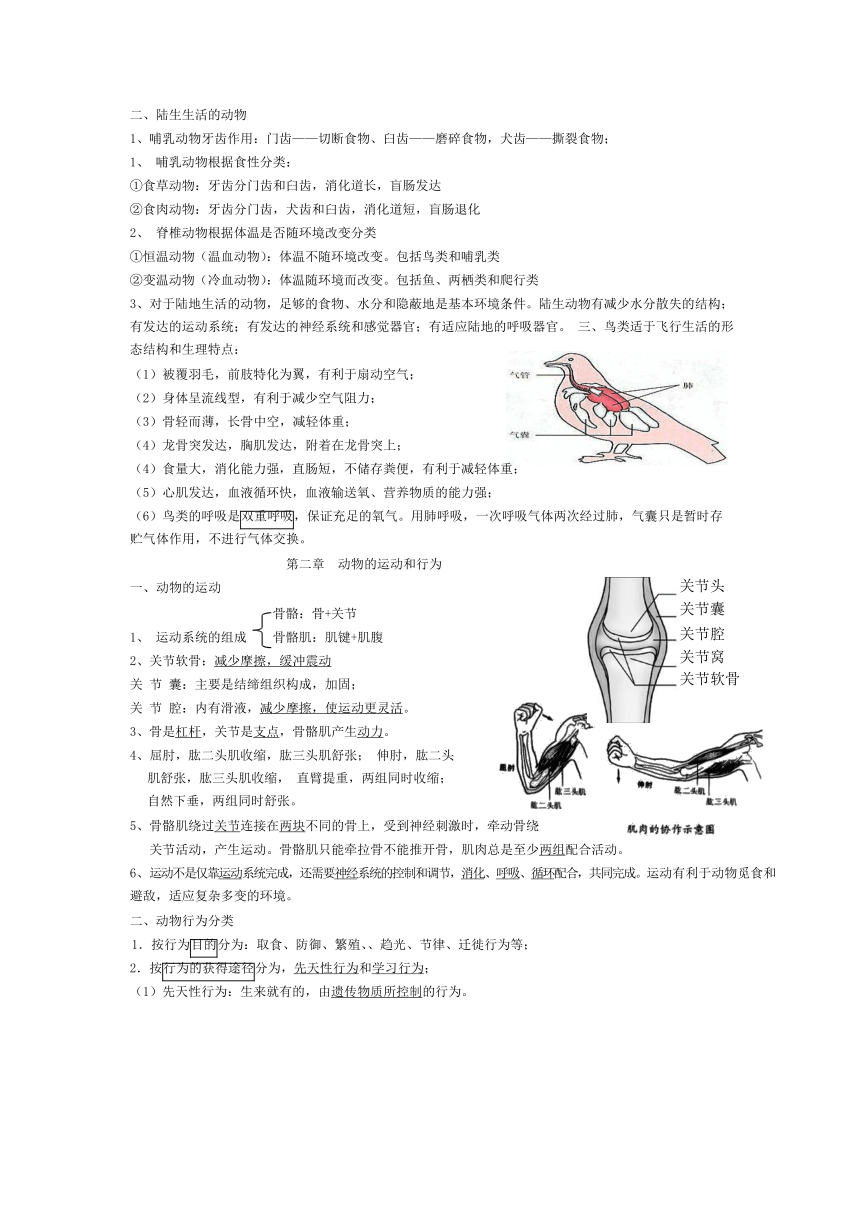 二、陆生生活的动物
1、哺乳动物牙齿作用：门齿——切断食物、臼齿——磨碎食物，犬齿——撕裂食物；
1、 哺乳动物根据食性分类：
①食草动物：牙齿分门齿和臼齿，消化道长，盲肠发达
②食肉动物：牙齿分门齿，犬齿和臼齿，消化道短，盲肠退化
2、 脊椎动物根据体温是否随环境改变分类
①恒温动物（温血动物）：体温不随环境改变。包括鸟类和哺乳类
②变温动物（冷血动物）：体温随环境而改变。包括鱼、两栖类和爬行类
3、对于陆地生活的动物，足够的食物、水分和隐蔽地是基本环境条件。陆生动物有减少水分散失的结构；
有发达的运动系统；有发达的神经系统和感觉器官；有适应陆地的呼吸器官。 三、鸟类适于飞行生活的形
态结构和生理特点：
（1）被覆羽毛，前肢特化为翼，有利于扇动空气；
（2）身体呈流线型，有利于减少空气阻力；
（3）骨轻而薄，长骨中空，减轻体重；
（4）龙骨突发达，胸肌发达，附着在龙骨突上；
（4）食量大，消化能力强，直肠短，不储存粪便，有利于减轻体重；
（5）心肌发达，血液循环快，血液输送氧、营养物质的能力强；
（6）鸟类的呼吸是双重呼吸，保证充足的氧气。用肺呼吸，一次呼吸气体两次经过肺，气囊只是暂时存
贮气体作用，不进行气体交换。
气管
肺
气囊
第二章 动物的运动和行为
一、动物的运动
骨骼：骨+关节
1、 运动系统的组成 骨骼肌：肌键+肌腹
2、关节软骨：减少摩擦，缓冲震动
关 节 囊：主要是结缔组织构成，加固；
关 节 腔：内有滑液，减少摩擦，使运动更灵活。
3、骨是杠杆，关节是支点，骨骼肌产生动力。
4、屈肘，肱二头肌收缩，肱三头肌舒张； 伸肘，肱二头
肌舒张，肱三头肌收缩， 直臂提重，两组同时收缩；
自然下垂，两组同时舒张。
关节头
关节囊
关节腔
关节窝
关节软骨
屈肘
肱三头肌
肱二头肌
伸肘
肱二头肌
肱三头肌
肌肉的协作示意图
5、骨骼肌绕过关节连接在两块不同的骨上，受到神经刺激时，牵动骨绕
关节活动，产生运动。骨骼肌只能牵拉骨不能推开骨，肌肉总是至少两组配合活动。
6、运动不是仅靠运动系统完成，还需要神经系统的控制和调节，消化、呼吸、循环配合，共同完成。运动有利于动物觅食和
避敌，适应复杂多变的环境。
二、动物行为分类
1．按行为目的分为：取食、防御、繁殖、、趋光、节律、迁徙行为等；
2．按行为的获得途径分为，先天性行为和学习行为；
（1）先天性行为：生来就有的，由遗传物质所控制的行为。